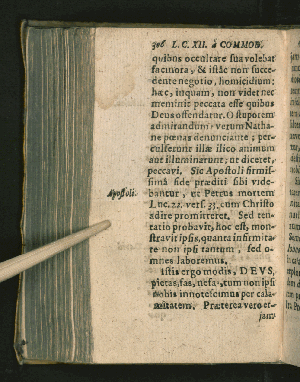 306 L. C. XII. à COMMOD.
quibus occultare sua volebat
facinora, & istâc non succe-
dente negotio, homicidium:
hæc, inquam, non videt nec
meminit peccata esse quibus
Deus offendatur. O stuporem
admirandum: verum Natha-
ne pœnas denunciante, per-
culserunt illæ ilico animum
atque illuminarunt, ut diceret,
peccavi. Sic Apostoli firmis-
simâ fide præditi sibi vide-
Apostoli.
bantur, ut Petrus mortem
Luc. 22. vers. 33. cum Christo
adire promitteret. Sed ten-
tatio probavit, hoc est, mon-
stravit ipsis, quanta infirmita-
te non ipsi tantum, sed o-
mnes laboremus.
Istis ergo modis, DEVS,
pietas, fas, nefas, tum non ipsi
nobis innotescimus per cala-
mitatem. Præterea vero et-
jam